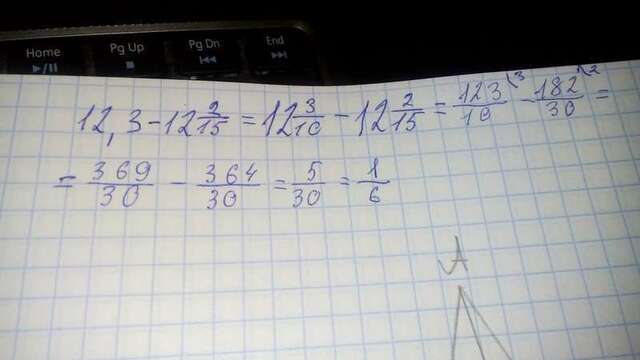 Home Pg Up Pg Dn End
12,3 - 12 2/15 = 12 3/10 - 12 2/15 = 123/10 \3 - 182/30 \2 =
= 369/30 - 364/30 = 5/30 = 1/6
A